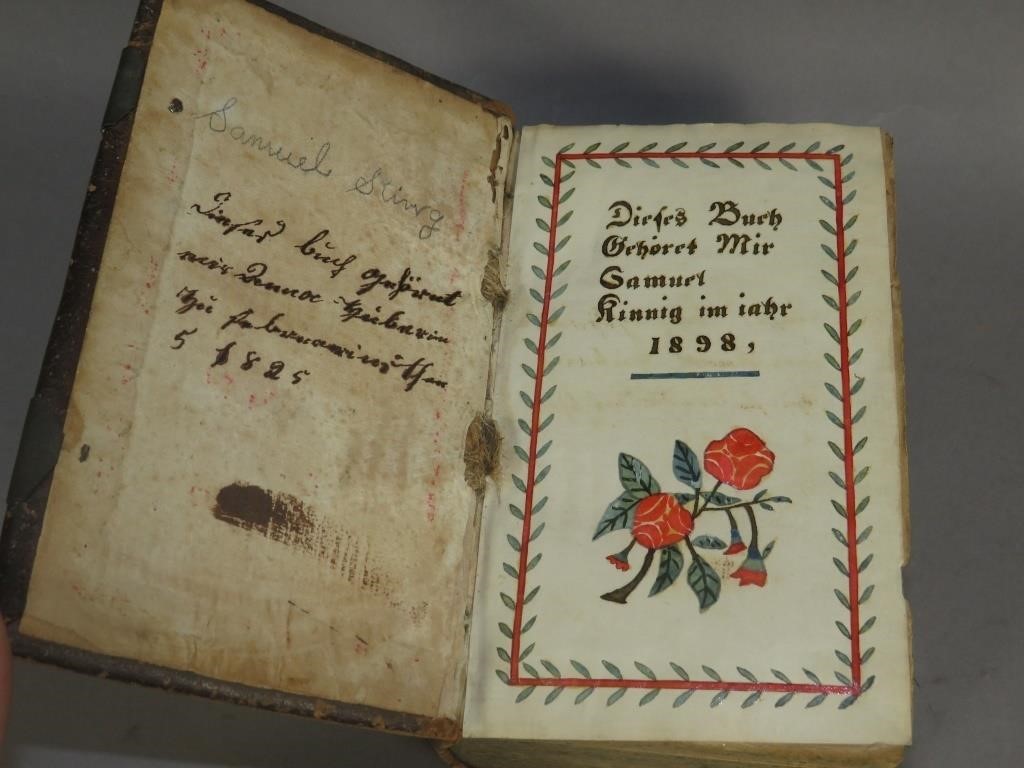 Samuel Stinrg
Dieses buch gehöret
mir Anna Huberin
zu februari
5 1825
Dieses Buch
Gehöret Mir
Samuel
Kinnig im iahr
1898,